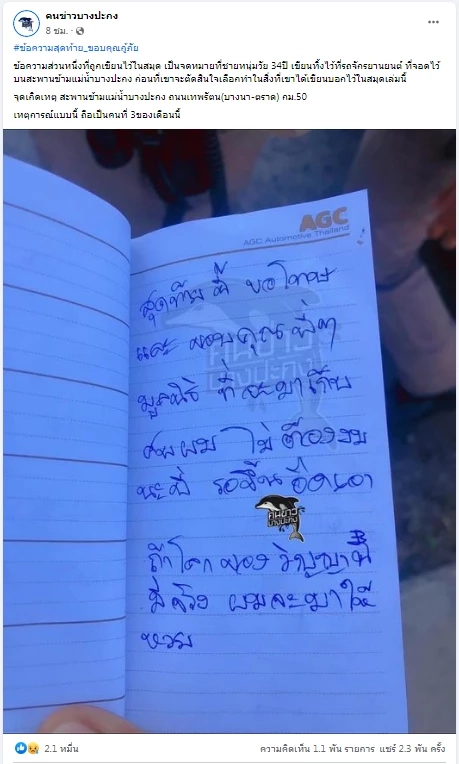 คนข่าวบางปะกง
8 ชม.
#ข้อความสุดท้าย_ขอบคุณกู้ภัย
ข้อความส่วนหนึ่งที่ถูกเขียนไว้ในสมุด เป็นจดหมายที่ชายหนุ่มวัย 34ปี เขียนทิ้งไว้ที่รถจักรยานยนต์ ที่จอดไว้
บนสะพานข้ามแม่น้ำบางปะกง ก่อนที่เขาจะตัดสินใจเลือกทำในสิ่งที่เขาได้เขียนบอกไว้ในสมุดเล่มนี้
จุดเกิดเหตุ สะพานข้ามแม่น้ำบางปะกง ถนนเทพรัตน(บางนา-ตราด) กม.50
เหตุการณ์แบบนี้ ถือเป็นคนที่ 3ของเดือนนี้
AGC
AGC Automotive Thailand
สุดท้ายนี้ ขอโทษ
และ ขอบคุณพี่ๆ
มูลนิธิ ที่จะมาเก็บ
ศพผม ไม่ต้องงม
นะพี่ รอขึ้นอืดเอา
คนข่าว
บางปะกง
ถ้าโลกของวิญญาณ
มีจริง ผมจะมาให้
หวย
2.1 หมื่น
ความคิดเห็น 1.1 พัน รายการ แชร์ 2.3 พัน ครั้ง